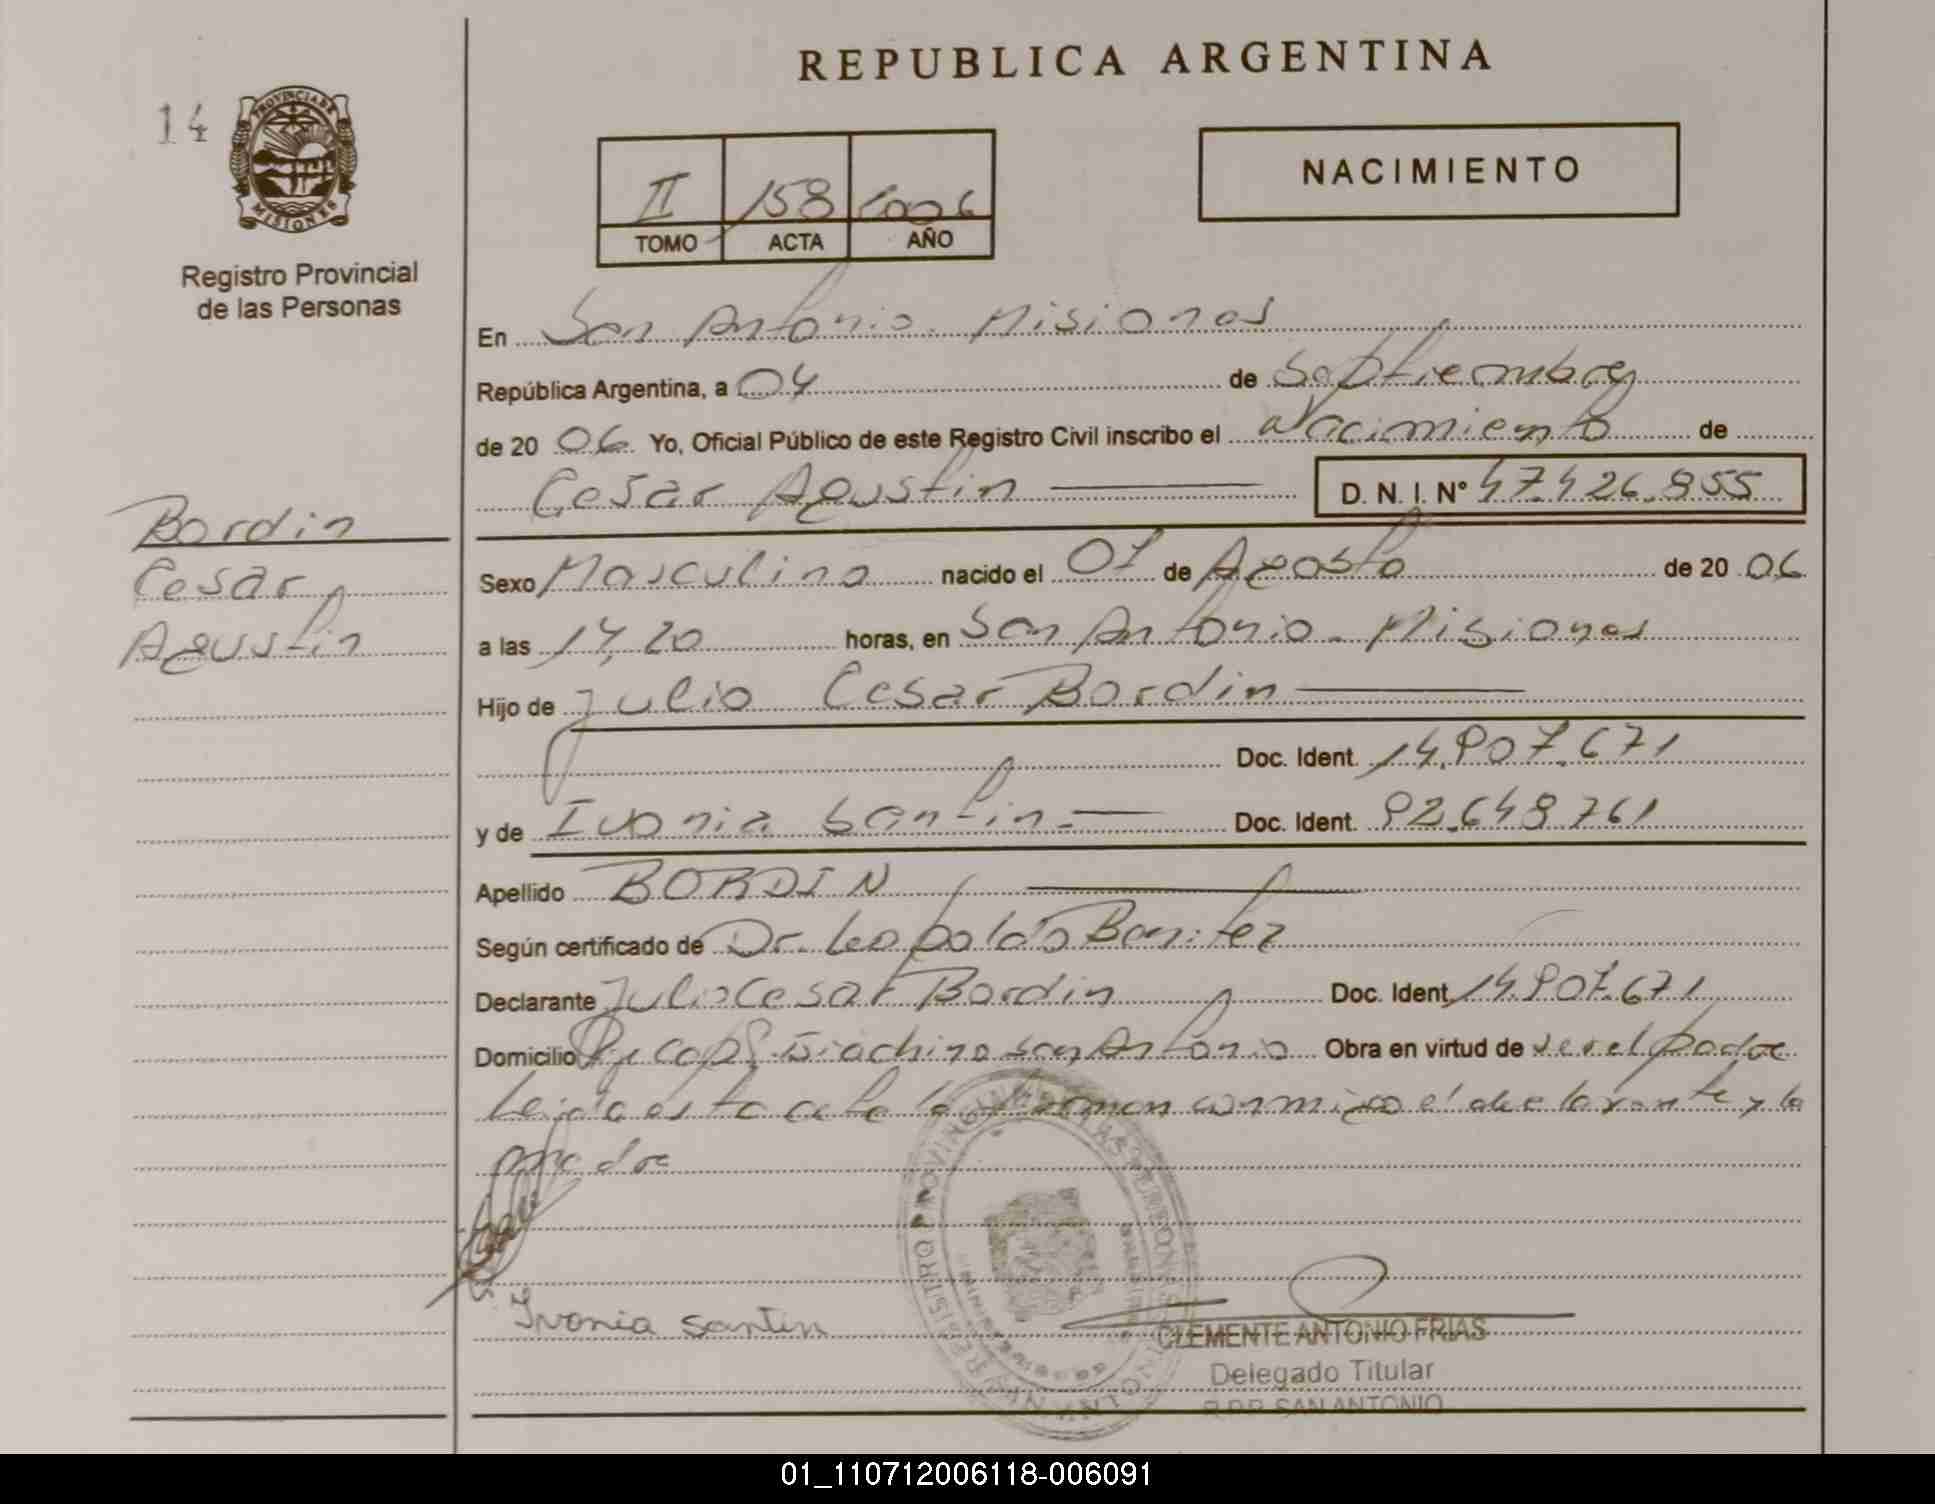 REPUBLICA ARGENTINA
14
PROVINCIA DE
MISIONES
Registro Provincial
de las Personas
II 158 2006
TOMO ACTA AÑO
NACIMIENTO
En San Antonio. Misiones
República Argentina, a 04 de Septiembre
de 20 06 Yo, Oficial Público de este Registro Civil inscribo el Nacimiento de
Cesar Agustin D. N. I. N° 47.426.855
Bordin
Cesar
Agustin
Sexo Masculino nacido el 07 de Agosto de 20 06
a las 14,20 horas, en San Antonio. Misiones
Hijo de Julio Cesar Bordin
Doc. Ident. 14.907.671
y de Ivonia Santin Doc. Ident. 92.648.761
Apellido BORDIN
Según certificado de Dr. Leopoldo Benitez
Declarante Julio Cesar Bordin Doc. Ident. 14.907.671
Domicilio Giachino San Antonio Obra en virtud de ser el padre
Leida esta acta la firman conmigo el declarante y la
madre
Ivonia Santin
CLEMENTE ANTONIO FRIAS
Delegado Titular
R.P.P. SAN ANTONIO
01_110712006118-006091